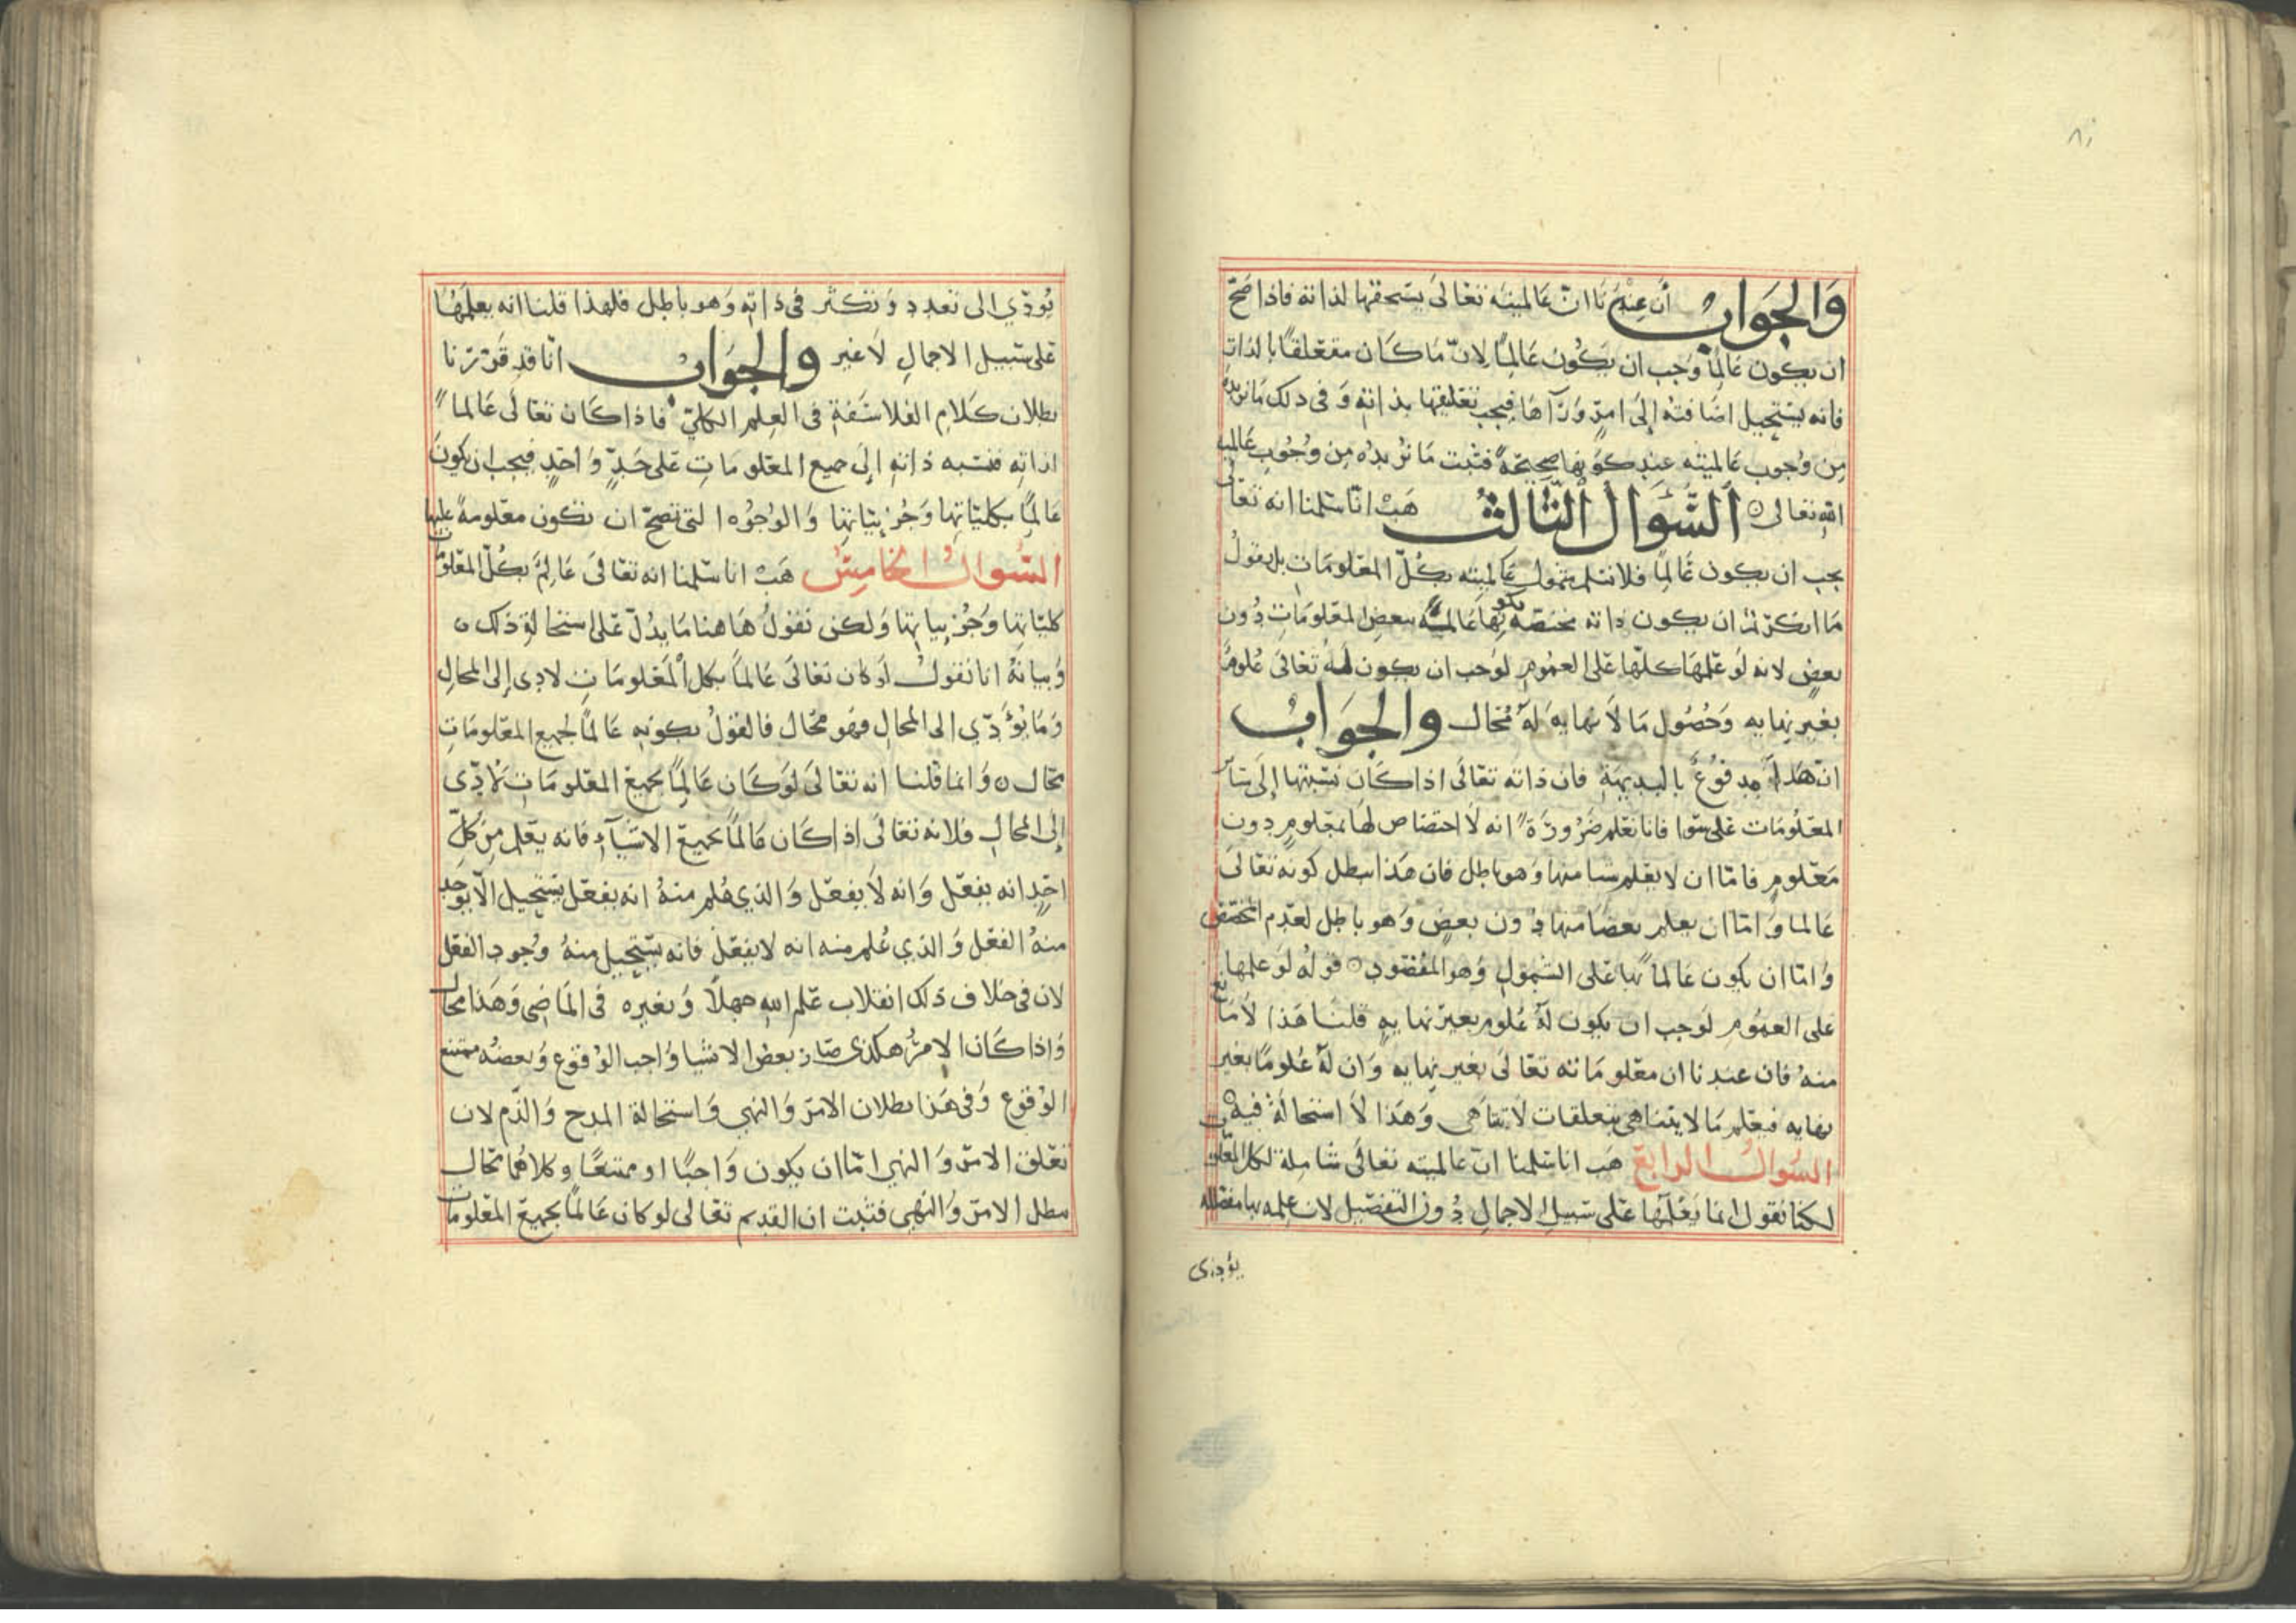 والجواب أن عندنا ان عالميته تعالى يستحقها لذاته فاذا صح
ان يكون عالما وجب ان يكون عالما لان ما كان متعلقا بالذات
فانه يستحيل اضافته إلى امر ورآها فيجب تعليقها بذاته وفى ذلك ما نريده
من وجوب عالميته عند كونها صحيحة فثبت ما نريده من وجوب عالمية
الله تعالى ه السؤال الثالث هب انا سلمنا انه تعالى
يجب ان يكون عالما فلا نسلم شمول عالميته بكل المعلومات بل يقول
ما انكرتم ان يكون ذاته مختصة بكونها عالمة ببعض المعلومات دون
بعض لانه لو علمها كلها على العموم لوجب ان يكون له تعالى علوما
بغير نهايه وحصول ما لا نهايه له محال والجواب
ان هذا مدفوع بالبديهة فان ذاته تعالى اذا كان نسبتها إلى سائر
المعلومات على سوا فانا نعلم ضرورة انه لا اختصاص لها بمعلوم دون
معلوم فاما ان لا يعلم شيا منها وهو باطل فان هذا يبطل كونه تعالى
عالما واما ان يعلم بعضا منها دون بعض وهو باطل لعدم المخصص
واما ان يكون عالما بها على الشمول وهو المقصود ه قوله لو علمها
على العموم لوجب ان يكون له علوم بغير نهايه قلنا هذا لا مانع
منه فان عندنا ان معلوماته تعالى بغير نهايه وان له علوما بغير
نهايه فيعلم ما لا يتناهى بتعلقات لا تتناهى وهذا لا استحالة فيه
السؤال الرابع هب انا سلمنا ان عالميته تعالى شاملة لكل المعلومات
لكنا نقول انما يعلمها على سبيل الاجمال دون التفصيل لان علمه بها مفصلة
يؤدى
يؤدي الى تعدد وتكثر فى ذاته وهو باطل فلهذا قلنا انه يعلمها
على سبيل الاجمال لا غير والجواب انا قد قررنا
بطلان كلام الفلاسفة فى العلم الكلي فاذا كان تعالى عالما
لذاته فنسبه ذاته إلى جميع المعلومات على حد واحد فيجب ان يكون
عالما بكلياتها وجزئياتها والوجوه التى تصح ان تكون معلومة عليها
السؤال الخامس هب انا سلمنا انه تعالى عالم بكل المعلومات
كلياتها وجزئياتها ولكن نقول هاهنا ما يدل على استحالة ذلك ه
وبيانه انا نقول لو كان تعالى عالما بكل المعلومات لادى إلى المحال
وما يؤدي الى المحال فهو محال فالقول بكونه عالما لجميع المعلومات
محال ه وانما قلنا انه تعالى لو كان عالما بجميع المعلومات لادى
إلى المحال فلانه تعالى اذا كان عالما بجميع الاشيآء فانه يعلم من كل
احد انه يفعل وانه لا يفعل والذي علم منه انه يفعل يستحيل الا يوجد
منه الفعل والذي علم منه انه لا يفعل فانه يستحيل منه وجود الفعل
لان فى خلاف ذلك انقلاب علم الله جهلا وبغيره فى الماضى وهذا محال
واذا كان الامر هكذى صار بعض الاشيا واجب الوقوع وبعضه ممتنع
الوقوع وفى هذا بطلان الامر والنهي واستحالة المدح والذم لان
تعلق الامر والنهي اما ان يكون واجبا او ممتنعا وكلاهما محال
مطل الامر والنهي فثبت ان القديم تعالى لو كان عالما بجميع المعلومات